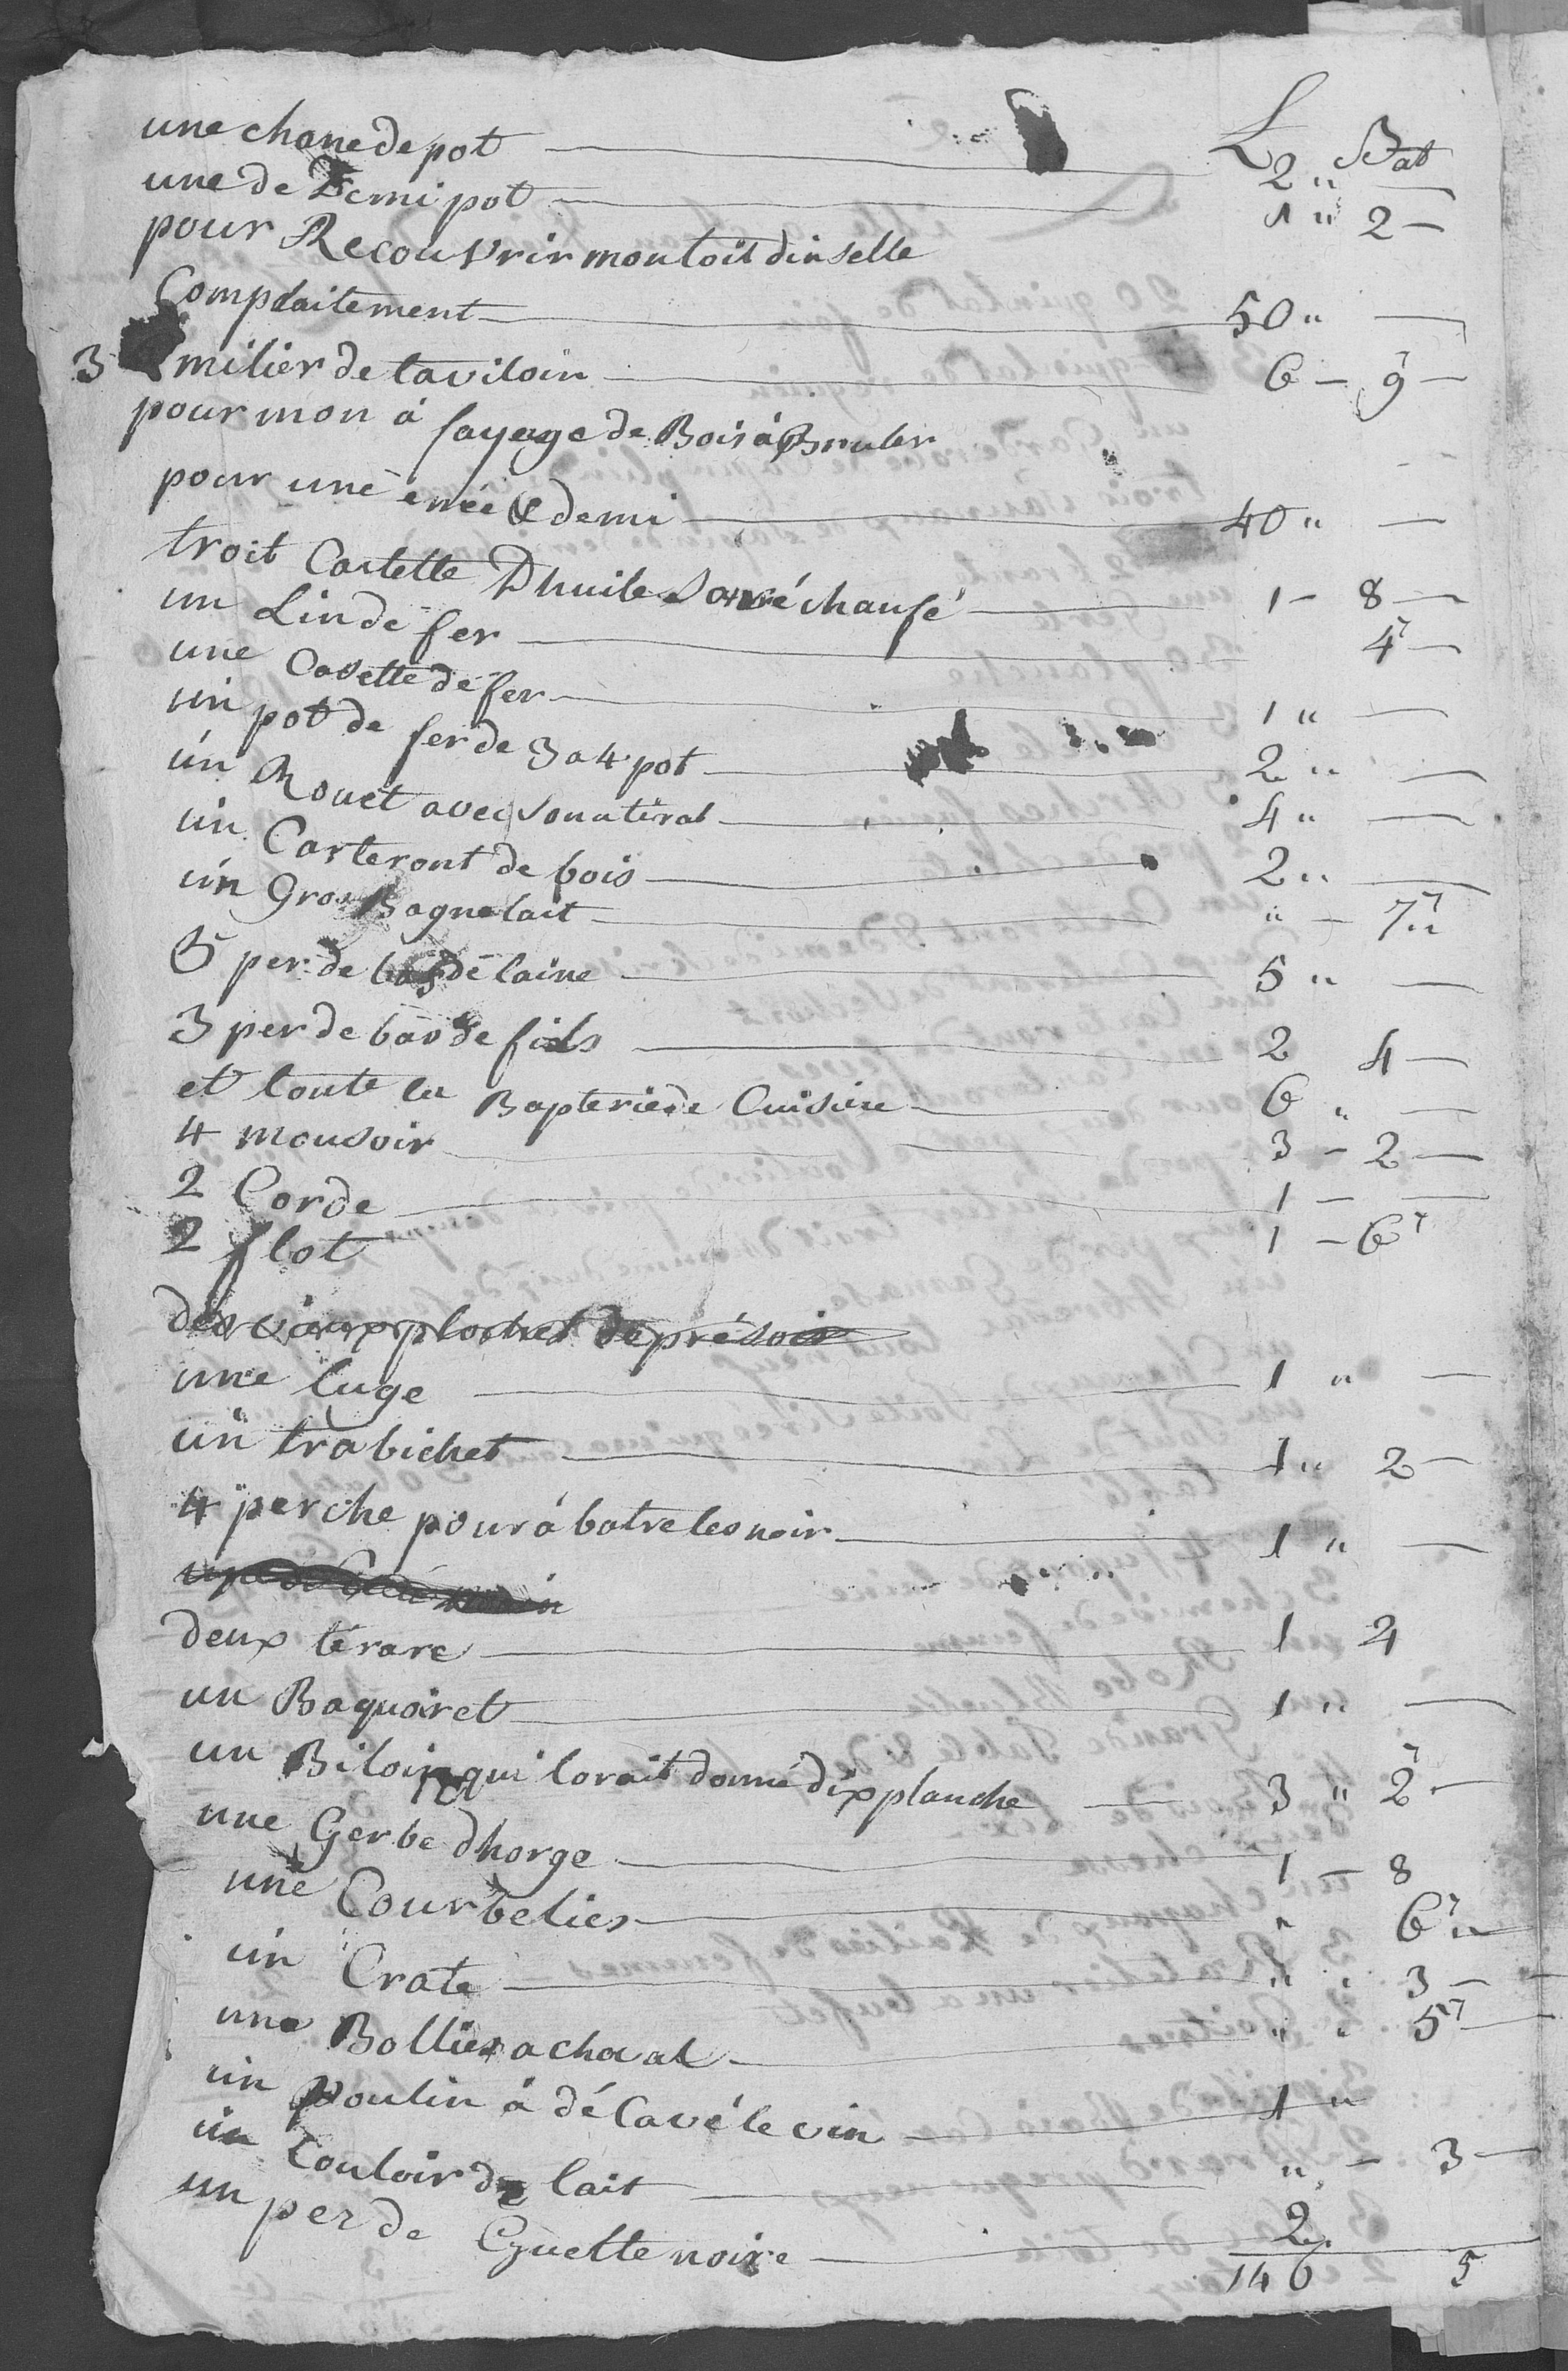 L Bat
une chane de pot 2 " —
une de Demi pot 1 " 2 —
pour Recouvrir montoit dinselle
Complaitement 50 " —
3 milier de taviloin 6 — 9 —
pour mon à fayage de Bois à Bruler
pour une énée & demi 40 " —
troit Cartette D'huile 1 — 8 —
un Lin de fer 4 —
une Casette de fer 1 " —
un pot de fer de 3 a 4 pot 2 " —
un Rouet avec son atiral 4 " —
un Carteront de bois 2 " —
un Gros Bagnolait " — 7 "
5 per de bas de laine 5 " —
3 per de bas de fils 2 4 —
et toute la Bapterie de Cuisine 6 " —
4 mousoir 3 — 2 —
2 Corde 1 — —
2 flot 1 — 6
une luge 1 " —
un trabichet 1 " 2 —
4 perche pour à batre les noir 1 " —
deux térare 1 2
un Baquoiret 1 " —
un Biloin qui lorait donné dix planche 3 " 2 —
une Gerbe dhorge 1 — 8
une Courbelies " 6 "
un Crate " " 3 —
une Bollies a chaval " " 5 —
un Poulin à dé Cavé le vin 1 "
un Couloir de lait " — 3 —
un per de Gyuette noire 2
146 5